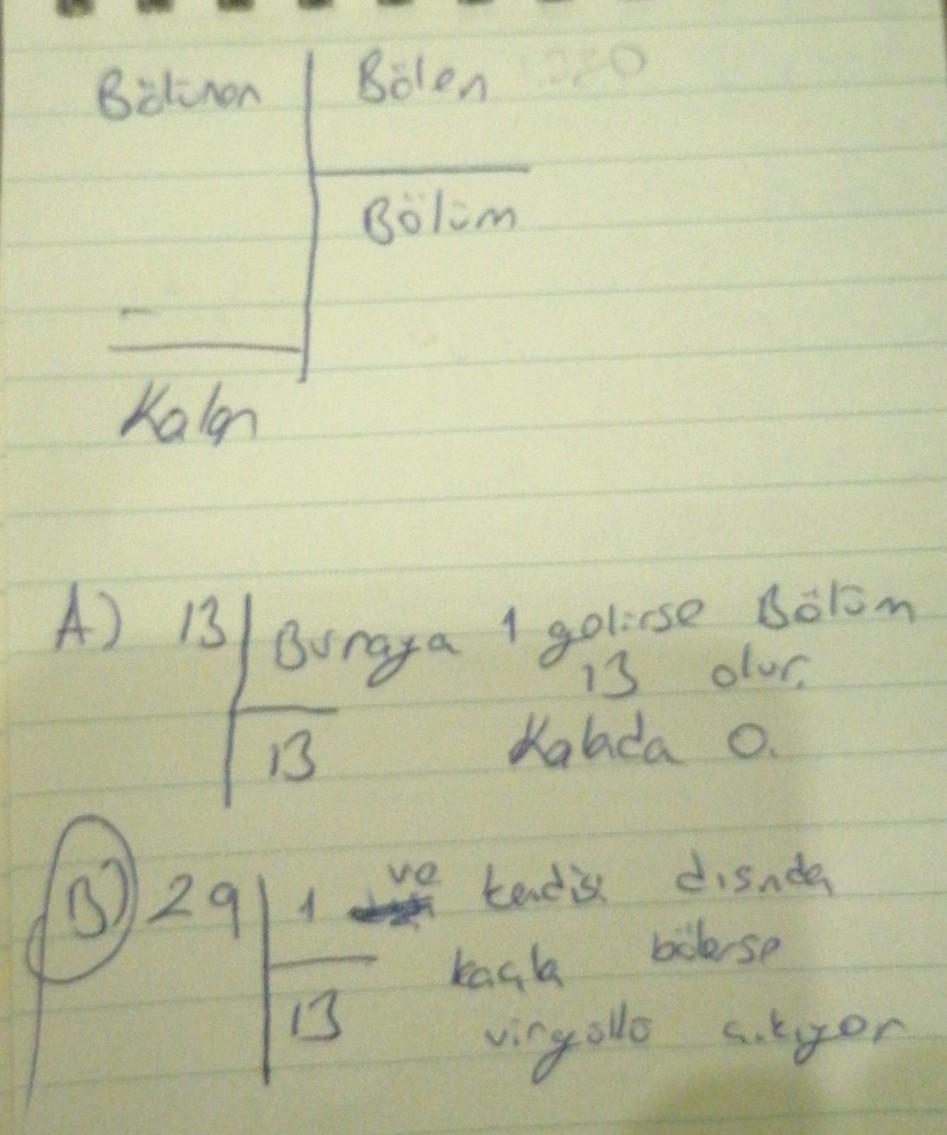 Bölünen
Bölen
Bölüm
Kalan
A) 13 Buraya 1 gelirse Bölüm
13 olur.
13 Kalanda 0.
B) 29 1 ve kendisi dışında
kaçla bölerse
13 virgüllü çıkıyor